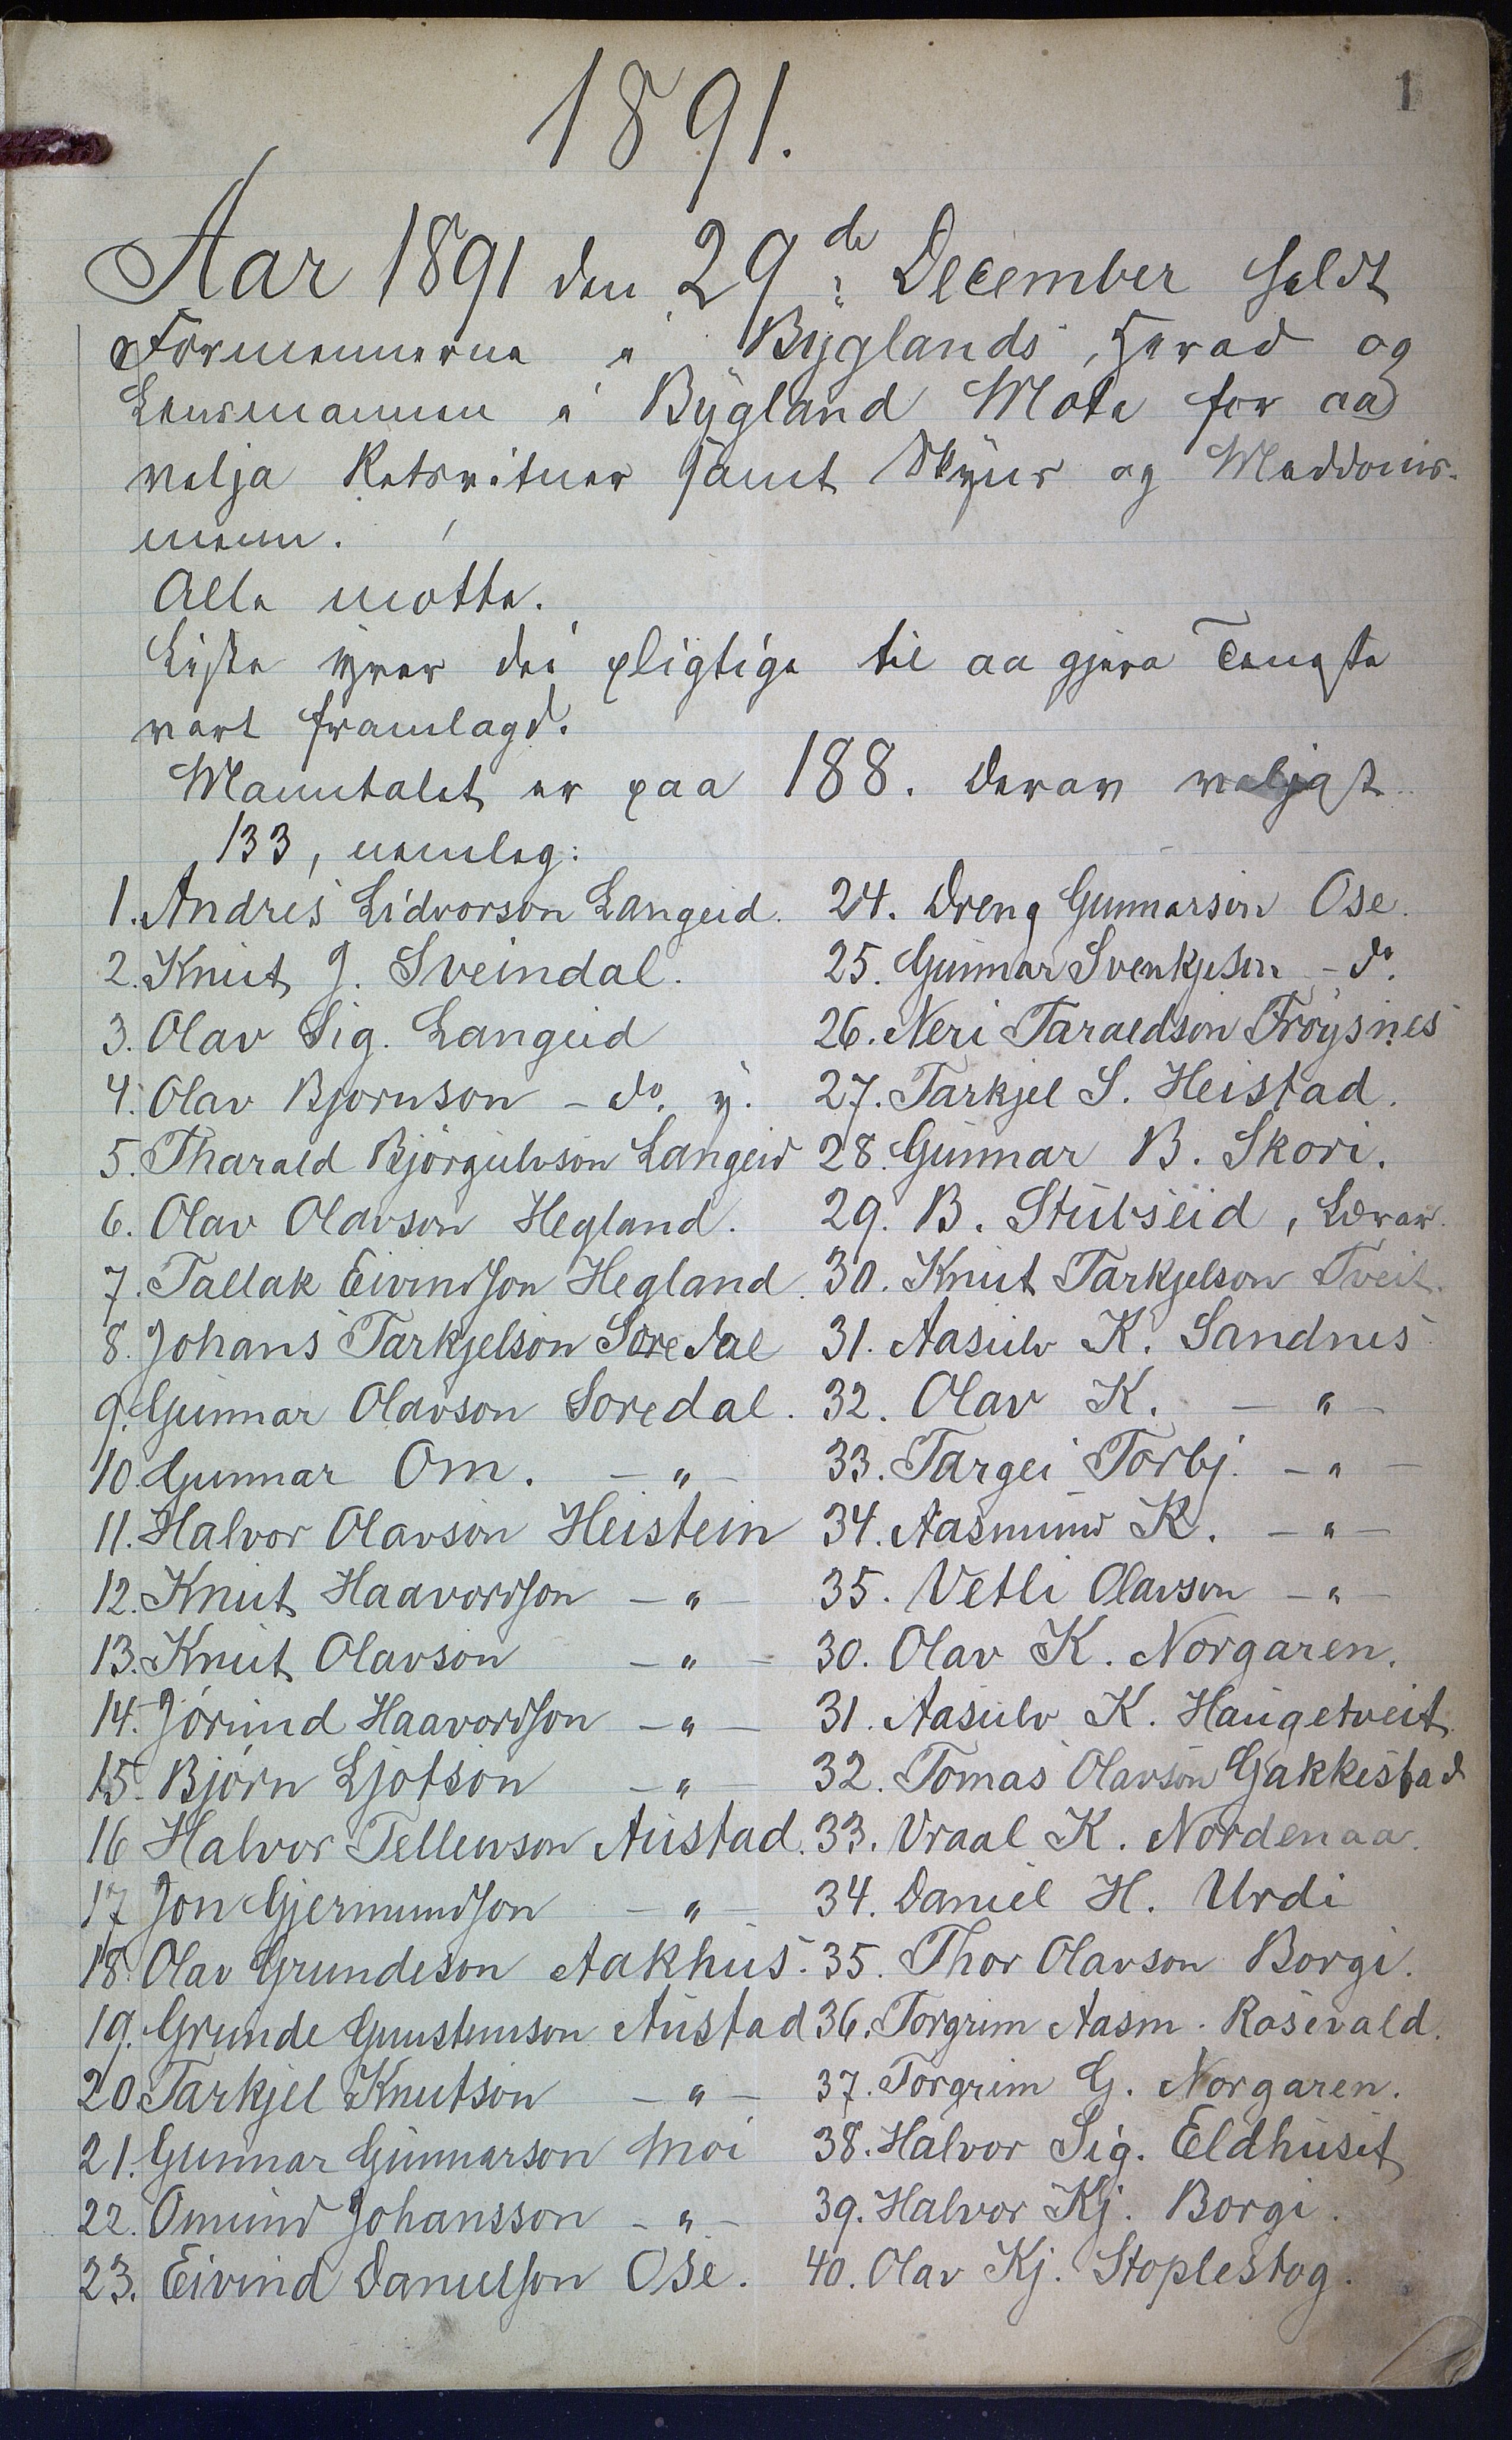 1
1891.
Aar 1891 den 29de December heldt
Formennerne i Byglands Herad og
Lensmannen i Bygland Mote for aa
velja Retsvitner samt Skjøns og Meddoms-
menn.
Alle motte.
Liste yver dei pligtige til aa gjera Teneste
vart framlagd.
Manntalet er paa 188. Derav veljast
133, nemleg:
1. Andres Lidvorson Langeid.
2. Knut J. Sveindal.
3. Olav Sig. Langeid
4. Olav Bjornson - do. y.
5. Tharald Bjørgulvson Langeid
6. Olav Olavson Hegland.
7. Tallak Eivindson Hegland.
8. Johans Tarkjelson Søredal
9. Gunnar Olavson Soredal.
10. Gunnar Om. - " -
11. Halvor Olavson Heistein
12. Knut Haavordson - " -
13. Knut Olavson - " -
14. Jørund Haavordson - " -
15. Bjørn Ljotson - "
16 Halvor Tellevson Austad.
17 Jon Gjermundson - " -
18. Olav Grundeson Aakhus.
19. Grunde Gunstenson Austad
20. Tarkjel Knutson - " -
21. Gunnar Gunnarson Moi
22. Omund Johansson - " -
23. Eivind Danielson Ose.
24. Dreng Gunnarson Ose.
25. Gunnar Svenkjeson - do.
26. Neri Taraldson Frøysnes
27. Tarkjel S. Heistad.
28. Gunnar B. Skori.
29. B. Stubseid, Lærar.
30. Knut Tarkjelson Tveit.
31. Aasulv K. Sandnes
32. Olav K. - " -
33. Targei Torbj. - " -
34. Aasmund K. - " -
35. Vetli Olavson - " -
30. Olav K. Norgaren.
31. Aasulv K. Haugetveit.
32. Tomas Olavson Gakkestad
33. Vraal K. Nordenaa.
34. Daniel H. Urdi
35. Thor Olavson Borgi.
36. Torgrim Aasm. Rosevald.
37. Torgrim G. Norgaren.
38. Halvor Sig. Eldhuset
39. Halvor Kj. Borgi.
40. Olav Kj. Stoplestog.